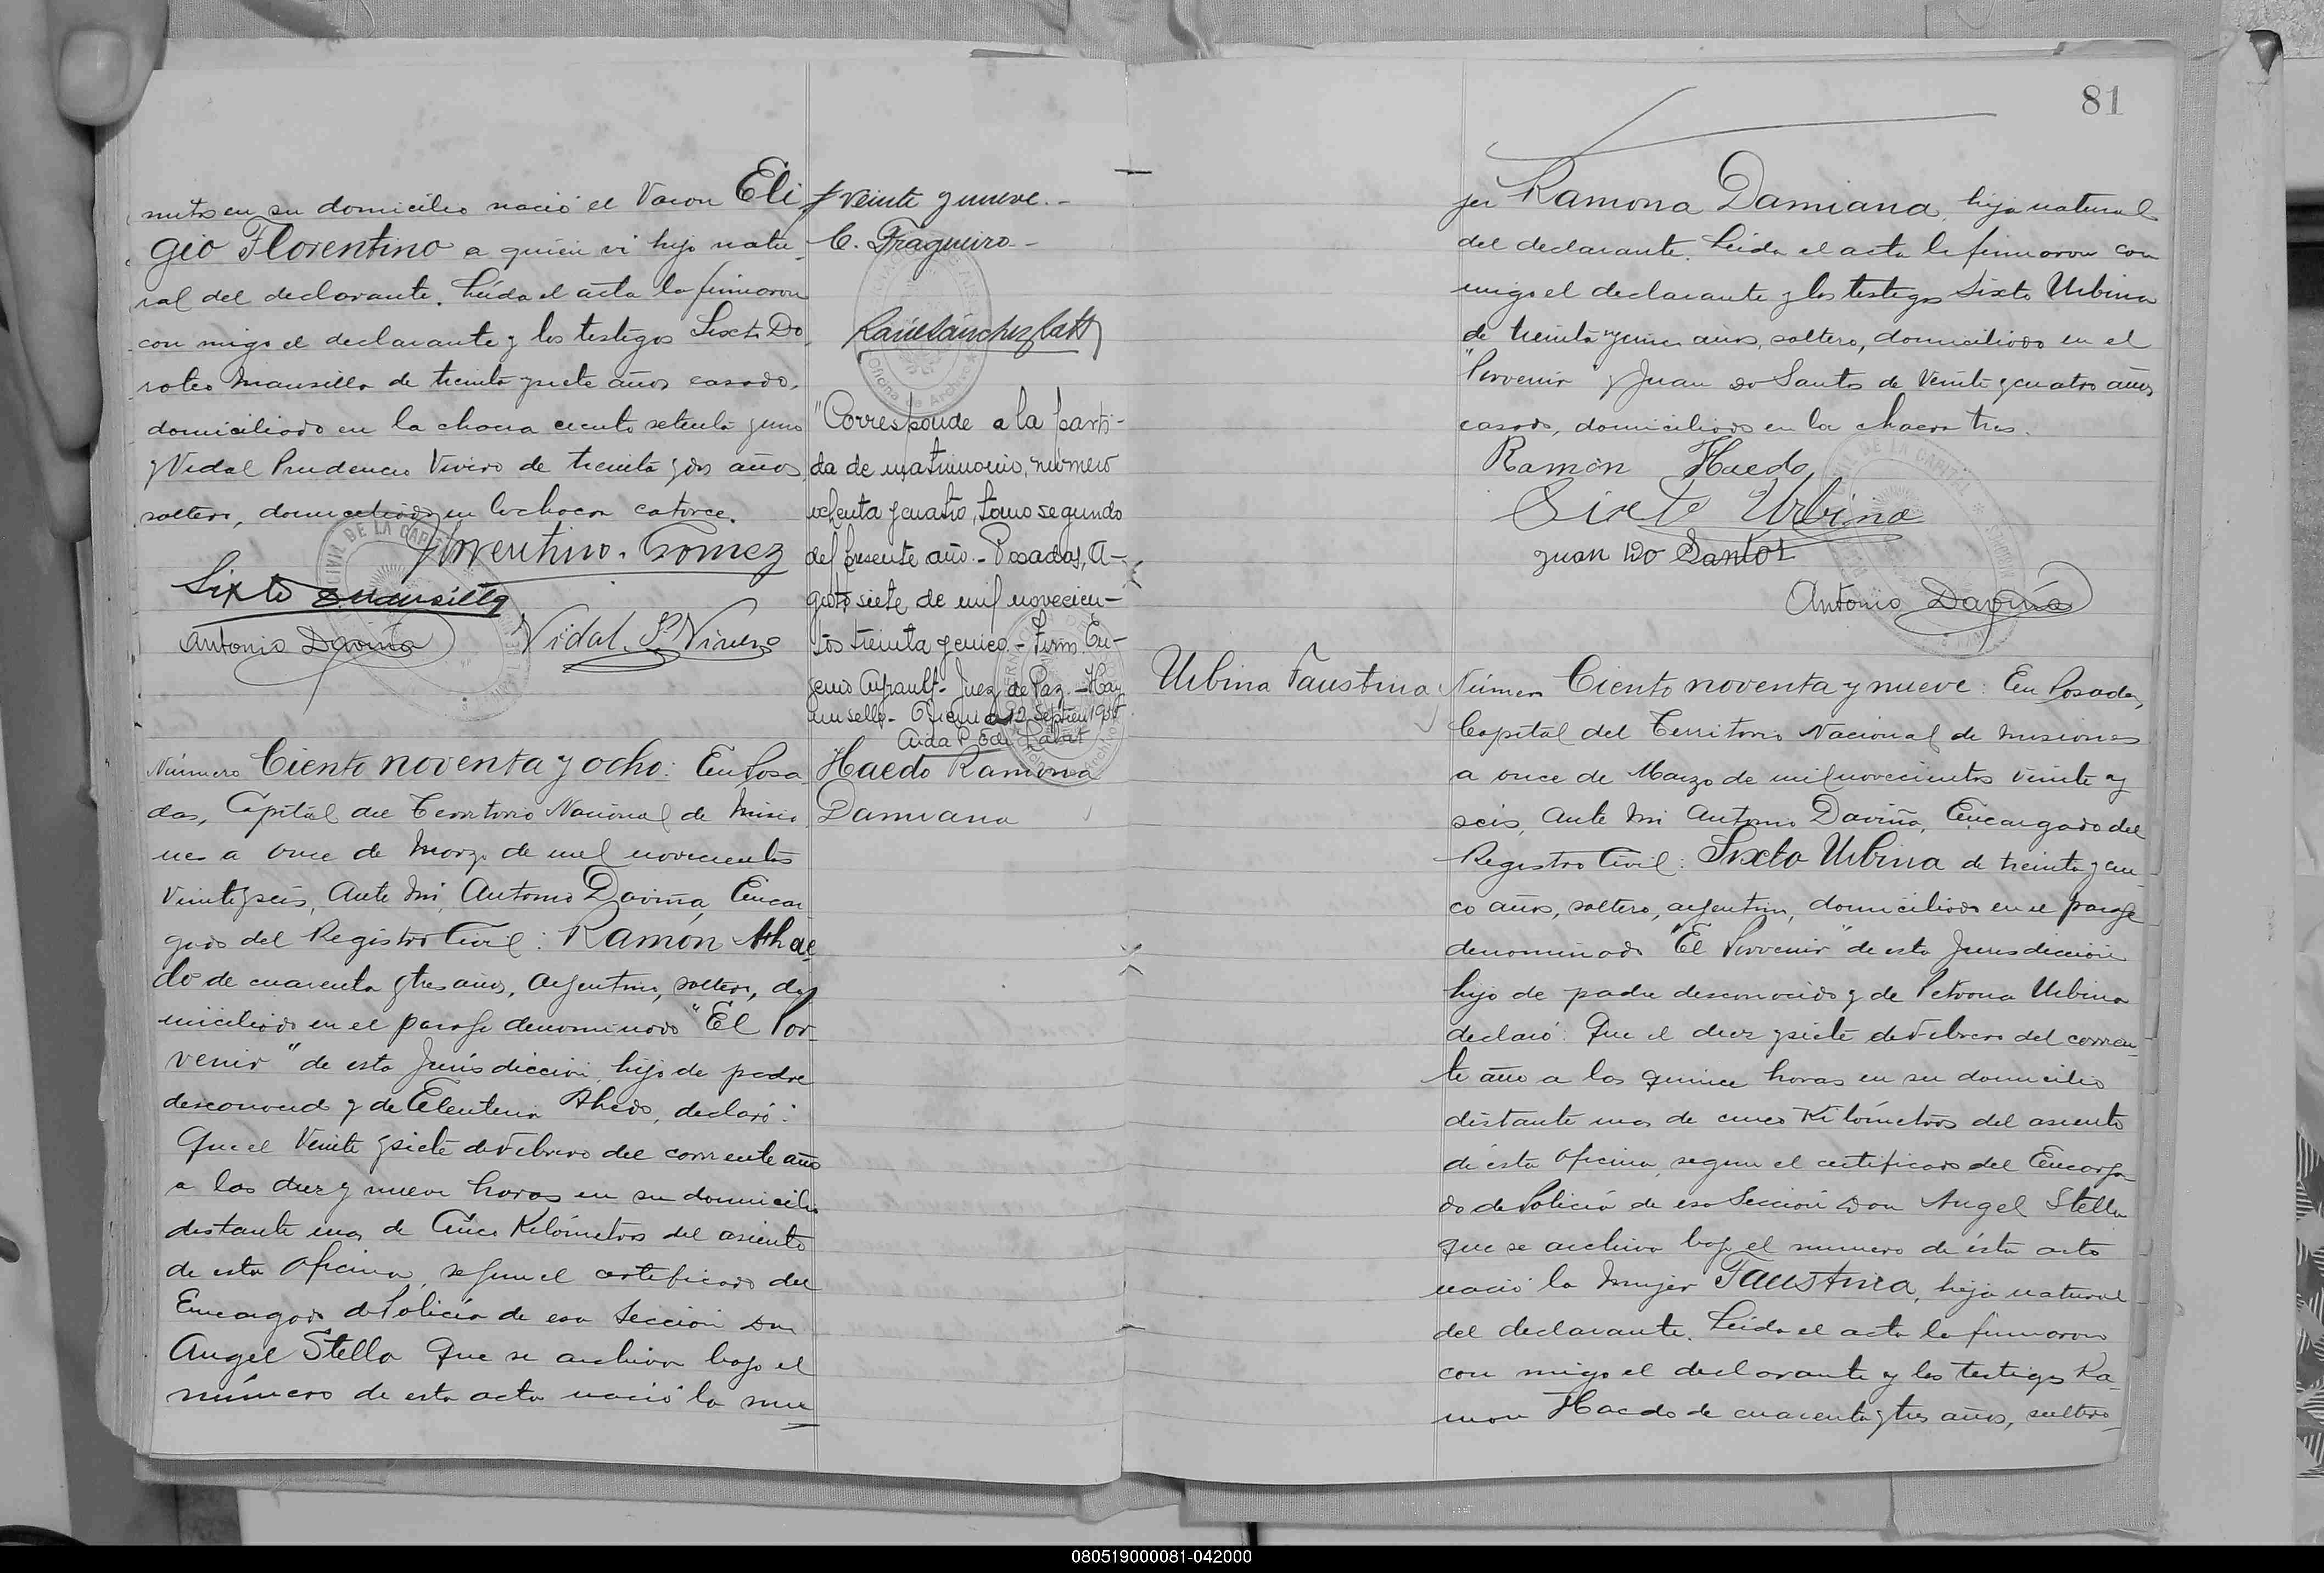 nutos en su domicilio nació el Varon Eli
gio Florentino a quien vi hijo natu-
ral del declarante. Leida el acta la firmaron
con migo el declarante y los testigos Sixto Do
roteo Mansilla de treinta y siete años casado,
domiciliado en la chacra ciento setenta y uno
y Vidal Prudencio Vivero de treinta y dos años,
soltero, domiciliado en la chacra catorce.
Florentino Gomez
Sixto Mansilla
Antonio Daviña
Vidal P. Vivero
Número Ciento noventa y ocho: En Posa
das, Capital del Territorio Nacional de Misio
nes a once de Marzo de mil novecientos
veinte y seis, Ante Mi, Antonio Daviña, Encar
gado del Registro Civil: Ramón Ahae
do de cuarenta y tres años, Argentino, soltero, do
miciliado en el paraje denominado "El Por-
venir" de esta Jurisdiccion, hijo de padre
desconocido y de Eleuteria Ahedo, declaró:
Que el Veinte y siete de Febrero del corriente año
a las diez y nueve horas en su domicilio
distante mas de Cinco Kilómetros del asiento
de esta Oficina, segun el certificado del
Encargado de Policía de esa Sección Don
Angel Stella Que se archiva bajo el
número de esta acta nació la mu
veinte y nueve.-
C. Fragueiro-
"Corresponde a la parti-
da de matrimonio, número
ochenta y cuatro, tomo segundo
del presente año.- Posadas, A-
gosto siete de mil novecien-
tos treinta y cinco.- Firm. Eu-
genio - Juez de Paz.- Hay
un sello.-
Haedo Ramona
Damiana
81
jer Ramona Damiana, hija natural
del declarante. Leida el acta la firmaron con
migo el declarante y los testigos Sixto Urbina
de treinta y cinco años, soltero, domiciliado en el
"Porvenir" y Juan do Santos de Veinte y cuatro años
casado, domiciliado en la chacra tres.
Ramón Haedo
Sixto Urbina
Juan Do Santos
Antonio Daviña
Urbina Faustina
Número Ciento noventa y nueve: En Posadas,
Capital del Territorio Nacional de Misiones
a once de Marzo de mil novecientos veinte y
seis, Ante Mi Antonio Daviña, Encargado del
Registro Civil: Sixto Urbina de treinta y cin-
co años, soltero, argentino, domiciliado en el paraje
denominado "El Porvenir" de esta Jurisdiccion
hijo de padre desconocido y de Petrona Urbina
declaró: Que el diez y siete de Febrero del corrien-
te año a las quince horas en su domicilio
distante mas de cinco Kilómetros del asiento
de ésta Oficina, segun el certificado del Encarga-
do de Policía de esa Sección Don Angel Stella
que se archiva bajo el numero de ésta acta
nació la Mujer Faustina, hija natural
del declarante. Leida el acta la firmaron
con migo el declarante y los testigos Ra-
mon Haedo de cuarenta y tres años, soltero
080519000081-042000